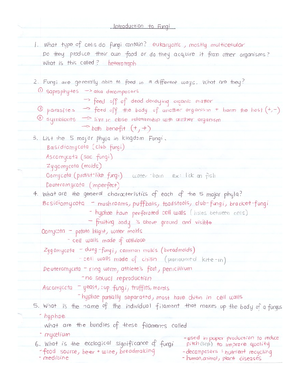 Introduction to Fungi
1. What type of cells do fungi contain? eukaryotic, mostly multicellular
Do they produce their own food or do they acquire it from other organisms?
What is this called? heterotroph
2. Fungi are generally said to feed in 3 different ways. What are they?
① saprophytes → the decomposers
→ feed off of dead decaying organic matter
② parasites → feed off the body of another organism + harm the host (+,-)
③ symbionts → live in close relationship with another organism
→ both benefit (+,+)
3. List the 5 major phyla in Kingdom Fungi.
Basidiomycota (club fungi)
Ascomycota (sac fungi)
Zygomycota (molds)
Oomycota (protist-like fungi)
Deuteromycota (imperfect)
4. What are the general characteristics of each of the 5 major phyla?
Basidiomycota - mushrooms, puffballs, toadstools, club-fungi, bracket-fungi
- hyphae have perforated cell walls
- fruiting body is above ground and visible
Oomycota - potato blight, water molds
- cell walls made of cellulose
Zygomycota - dung-fungi, common molds (breadmolds)
cell walls made of chitin
Deuteromycota - ring worm, athlete's foot, penicillium
- no sexual reproduction
Ascomycota - yeasts, cup fungi, truffles, morels
- hyphae partially separated, most have chitin in cell walls
5. What is the name of the individual filament that makes up the body of a fungus
- hyphae
What are the bundles of these filaments called
- mycelium
6. What is the ecological significance of fungi
- food source, beer + wine, breadmaking
- medicine
- used in paper production to make
- decomposers - nutrient recycling
- human, animal, plant diseases